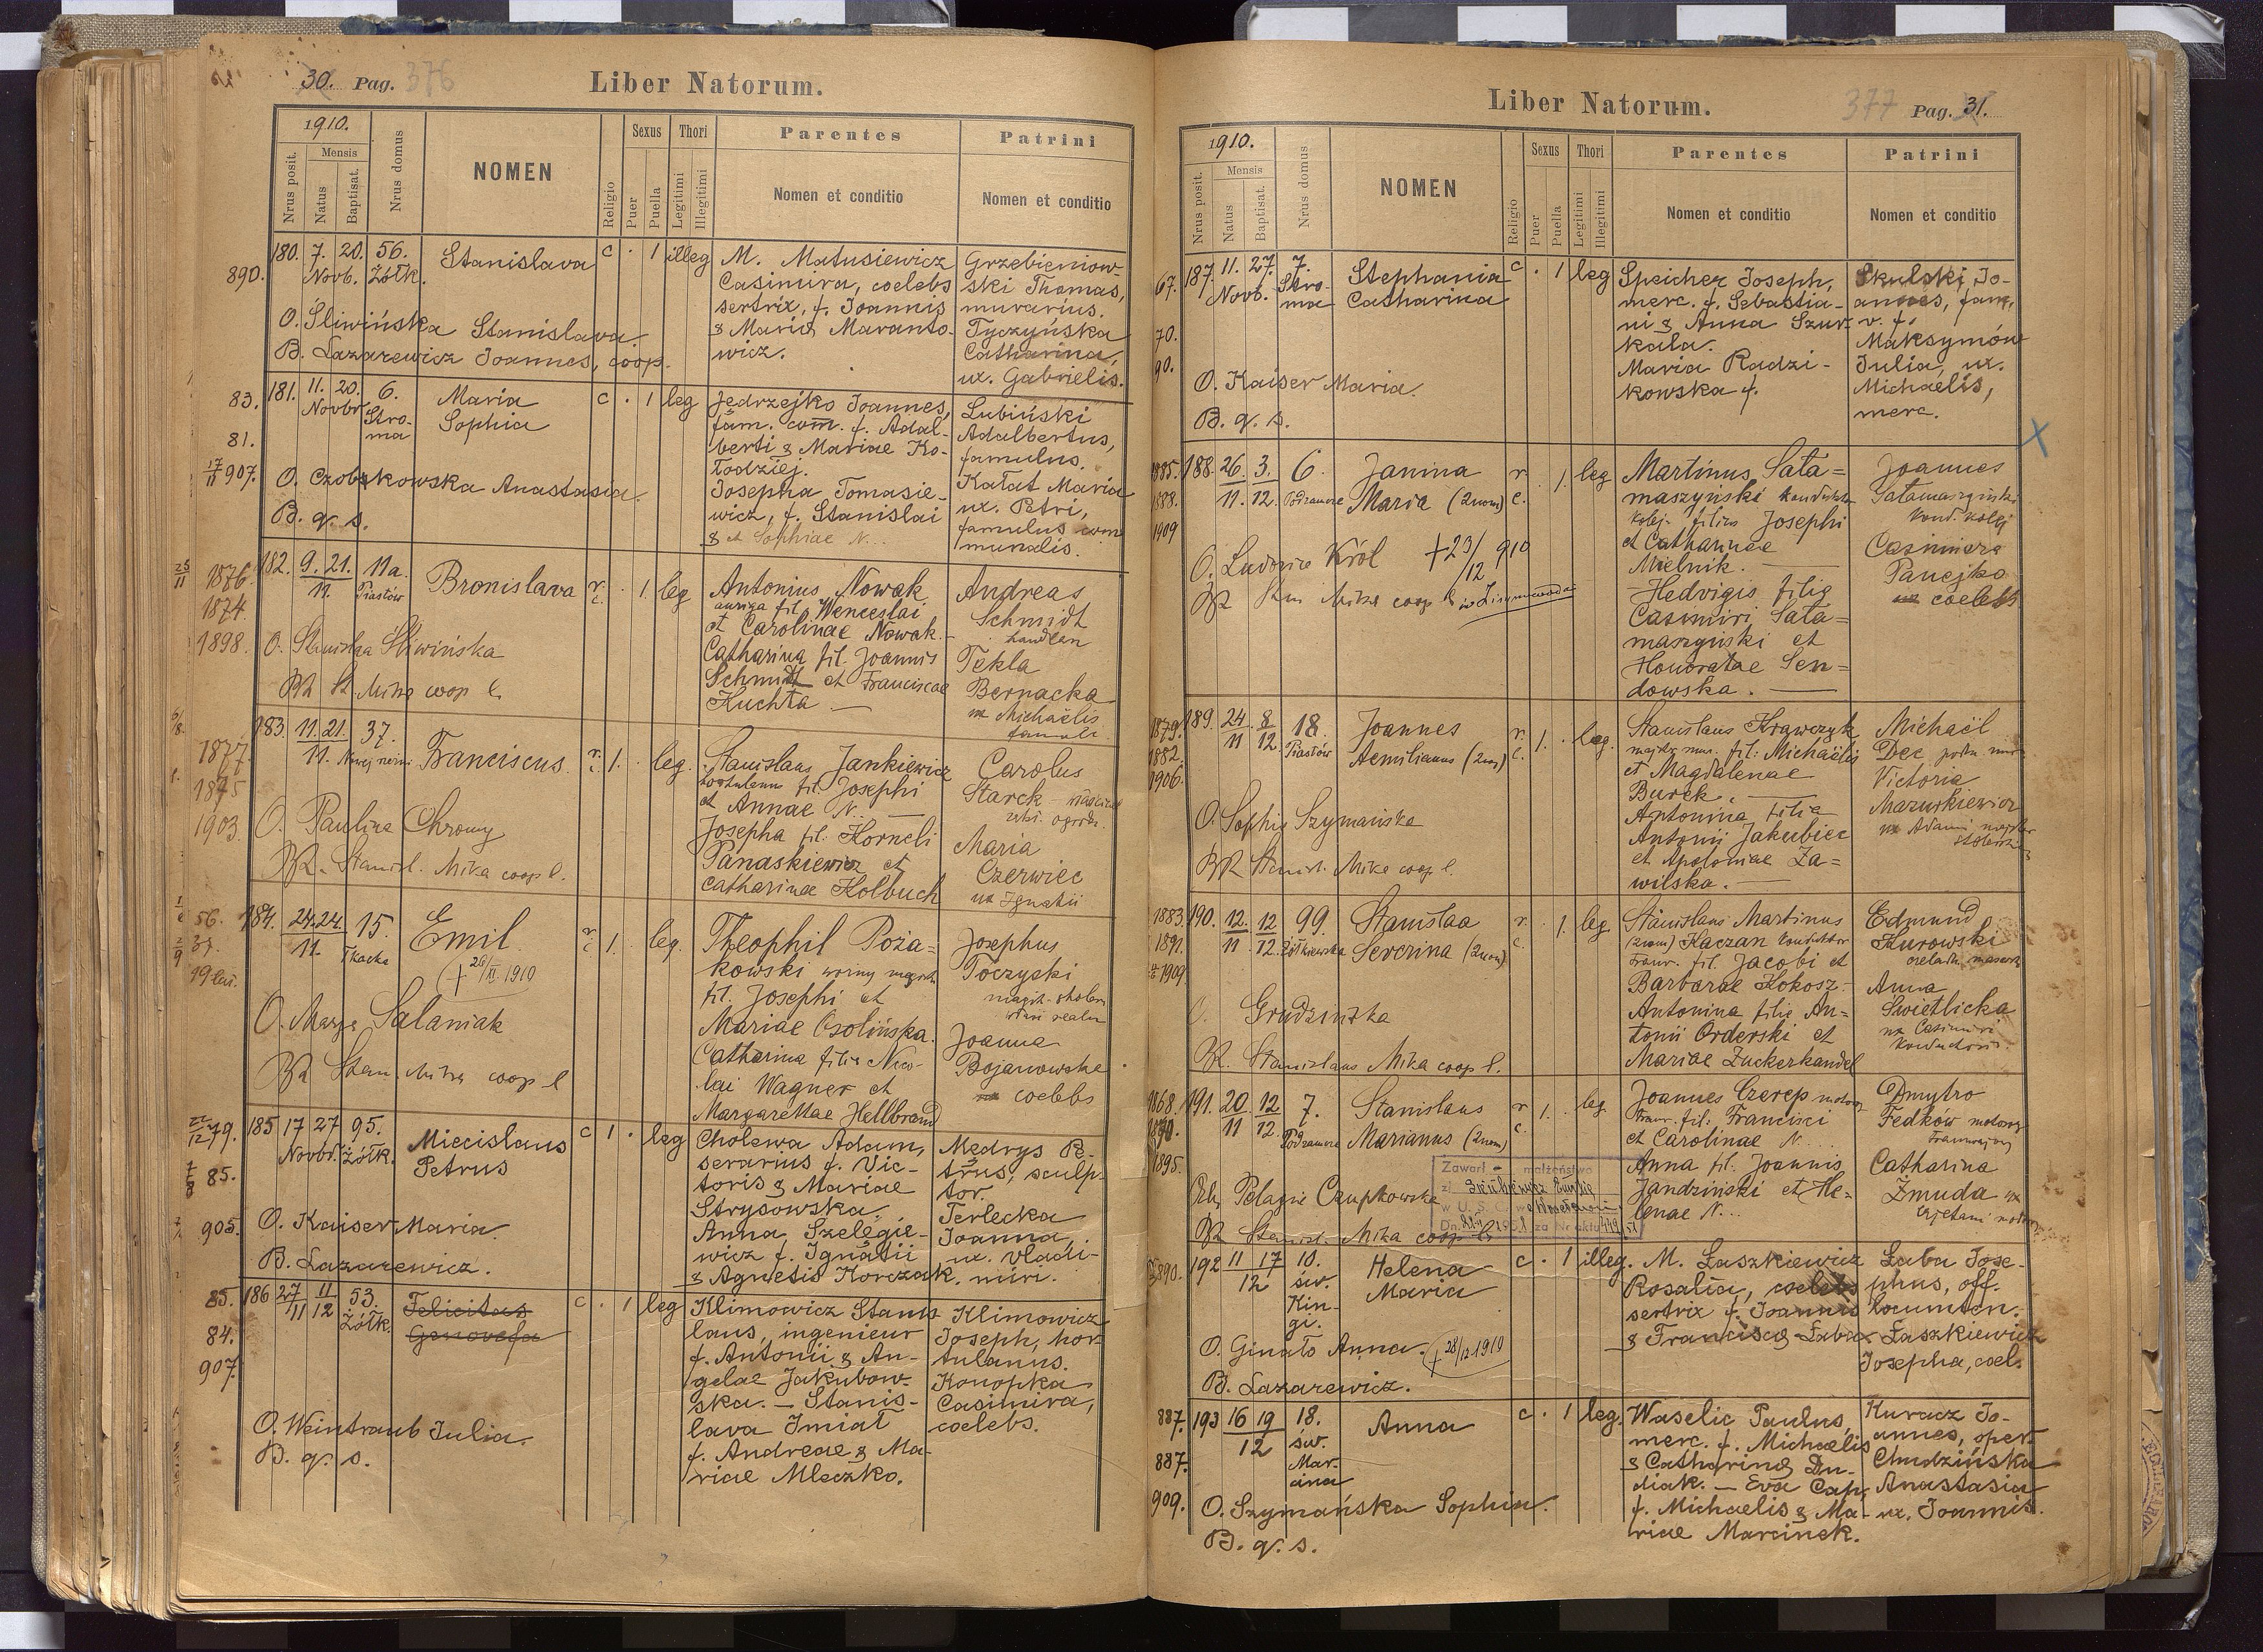 30. Pag. 376
Liber Natorum.
1910.
Nrus posit.
Mensis
Natus
Baptisat.
Nrus domus
NOMEN
Religio
Sexus
Puer
Puella
Thori
Legitimi
Illegitimi
Parentes
Nomen et conditio
Patrini
Nomen et conditio
890.
180. 7. 20. 56.
Novb. Żółk.
Stanislava
c . 1 illeg
M. Matusiewicz
Casimira, coelebs
sertrix, f. Joannis
& Mariae Maranto-
wicz.
Grzebieniow-
ski Thomas,
murarius.
Tyczyńska
Catharina,
ux. Gabrielis.
O. Śliwińska Stanislava.
B. Lazarewicz Joannes, coop.
83.
81.
17/11 907.
181. 11. 20. 6.
Novbr. Stro-
ma
Maria
Sophia
c . 1 leg
Jedrzejko Joannes,
fam. com. f. Adal-
berti & Mariae Ko-
łodziej.
Josepha Tomasie-
wicz, f. Stanislai
& et Sophiae N...
Lubiński
Adalbertus,
famulus.
Kałat Maria
ux. Petri,
famulus com
munalis.
O. Czobskowska Anastasia.
B. q. s.
25/11 1876.
1874.
1898.
182. 9. 21. 11a.
11. Piastów
Bronislava
r. c. . 1. leg
Antonius Nowak
auriga fil. Wenceslai
et Carolinae Nowak.
Catharina fil. Joannis
Schmidt et Franciscae
Kuchta —
Andreas
Schmidt
handlan
Tekla
Bernacka
ux Michaëlis
famuli
O. Stanislaa Śliwińska
BR St. Mika coop l.
1877.
1875
1903.
183. 11. 21. 37.
11.
Franciscus
r. c. 1. . leg.
Stanislaus Jankiewicz
fil. Josephi
et Annae N. —
Josepha fil. Korneli
Panaskiewicz et
Catharinae Kolbuch
Carolus
Starck
Maria
Czerwiec
ux Ignatii
O. Paulina Chromy
BR. Stanisl. Mika coop l.
56.
184. 24. 24. 15.
11. Tkacka
Emil
+ 26/XI 1910
r. c. 1. leg.
Theophil Poża-
kowski woźny magistr
fil. Josephi et
Mariae Osolińska.
Catharina filia Nico-
lai Wagner et
Margarettae Hellbrand
Josephus
Toczyski
Joanna
Bojanowska
coelebs
O. Marya Salaniak
BR Stan. Mika coop l
22/12 79.
7/8 85.
905.
185 17 27 95.
Novbr. Żółk.
Miecislaus
Petrus
c 1 . leg
Cholewa Adam,
serarius f. Vic-
toris & Mariae
Strysowska
Anna Szelęgie-
wicz f. Ignatii
& Agnetis Korczak.
Mędrys Pe-
trus, sculp-
tor.
Terlecka
Joanna,
ux. Vladi-
miri.
O. Kaiser Maria.
B. Lazarewicz.
85.
84.
907.
186 27 11 53.
11 12 Żółk.
Felicitas
Genovefa
c . 1 leg
Klimowicz Stanis
laus, ingenieur
f. Antonii & An-
gelae Jakubow-
ska. — Stanis-
lava Imiał
f. Andreae & Ma-
riae Mleczko.
Klimowicz
Joseph, hor-
tulanus.
Konopka
Casimira,
coelebs.
O. Weintraub Julia.
B. q. s.
Liber Natorum.
377 Pag. 31.
1910.
Nrus posit.
Mensis
Natus
Baptisat.
Nrus domus
NOMEN
Religio
Sexus
Puer
Puella
Thori
Legitimi
Illegitimi
Parentes
Nomen et conditio
Patrini
Nomen et conditio
67.
70.
90.
187. 11. 27. 7.
Novb. Stro-
ma
Stephania
Catharina
c . 1 leg
Speicher Joseph,
merc. f. Sebastia-
ni & Anna Szur-
kala.
Maria Radzi-
kowska f.
Skulski Jo-
annes, fam,
v. f.
Maksymów
Julia, ux.
Michaelis,
merc.
O. Kaiser Maria.
B. q. s.
X
1885.
1888.
1909
188. 26. 3. 6.
11. 12. Podzamcze
Janina
Maria (2nom)
r. c. . 1. leg
Martinus Sata=
maszyński konduktor
kolej. filius Josephi
et Catharinae
Mielnik. —
Hedvigis filia
Casimiri Sata=
maszyński et
Honoratae Sen=
dowska. —
Joannes
Satamaszyński
kond. kolej
Casimiera
Panejko
coelebs
O. Ludovica Król + 23/12 910
1879.
1882.
1906.
189. 24 8 18.
11 12. Piastów
Joannes
Aemilianus (2nom)
r. c. 1. . leg.
Stanislaus Krawczyk
majstr. mur. fil. Michaëlis
et Magdalenae
Burek. —
Antonina filia
Antonii Jakubiec
et Apoloniae Za=
wilska. —
Michaël
Dec
Victoria
Mazurkiewicz
ux Adami majster
O. Sophia Szymańska
BR Stanisl. Mika coop l.
1883
1891.
1909
190. 12. 12 99
11 12. Żółkiewska
Stanislaa
Severina (2nom)
r. c. . 1. leg.
Stanislaus Martinus
(2nom) Kaczan konduktor
tramw. fil. Jacobi et
Barbarae Kokosz-
Antonina filia An-
tonii Orderski et
Mariae Zuckerkandel
Edmund
Kurowski
czeladn. masarz
Anna
Swietlicka
ux Casimiri
konductoris.
O. Grudzinska
BR. Stanislaus Mika coop l.
1868.
1870.
1895.
191. 20 12 7.
11 12. Podzamcze
Stanislaus
Marianus (2nom)
r c. 1. leg
Joannes Czerep motorow
tramw. fil. Francisci
et Carolinae N...
Anna fil. Joannis
Jandziński et He-
lenae N...
Dmytro
Fedków motorowy
tramwajowy
Catharina
Żmuda ux
Cajetani
Pelagia Czupkowska
BR Stanisl. Mika coop l.
Zawarł - małżeństwo
w U. S. C.
Dn. za Nr aktu
890.
192 11 17 10.
12 św.
Kin-
gi.
Helena
Maria
c . 1 illeg.
M. Łaszkiewicz
Rosalia, coelebs
sertrix f. Joannis
& Franciscae Łaba
Łaba Jose-
phus, off.
locumten.
Łaszkiewicz
Josepha, coel.
O. Ginato Anna. + 28/12 1910
B. Lazarewicz.
887.
887.
909.
193 16 19 18.
12 św.
Mar-
cina
Anna
c . 1 leg.
Waselic Paulus,
merc. f. Michaelis
& Catharinae Du-
diak. — Eva Cap,
f. Michaelis & Ma-
riae Marcinek.
Kuracz Jo-
annes, oper.
Chudzińska
Anastasia
ux. Joannis.
O. Szymańska Sophia.
B. q. s.